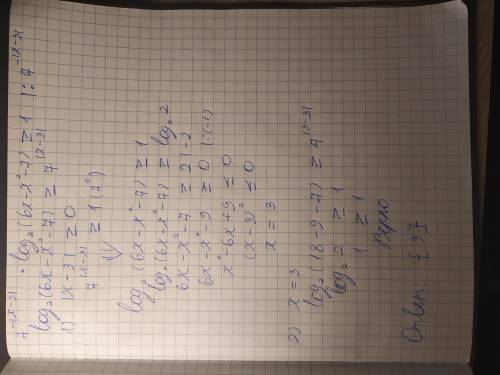 7^{-|x-3|} · log₂(6x-x²-7) ≥ 1 |: 7^{-|x-3|}
log₂(6x-x²-7) ≥ 7^{|x-3|}
1) |x-3| ≥ 0
7^{|x-3|} ≥ 1 (7⁰)
⇓
log₂(6x-x²-7) ≥ 1
log₂(6x-x²-7) ≥ log₂ 2
6x-x²-7 ≥ 2 |-2
6x-x²-9 ≥ 0 |·(-1)
x²-6x+9 ≤ 0
(x-3)² ≤ 0
x = 3
2) x = 3
log₂(18-9-7) ≥ 7^{|3-3|}
log₂ 2 ≥ 1
1 ≥ 1
Верно
Ответ: {3}